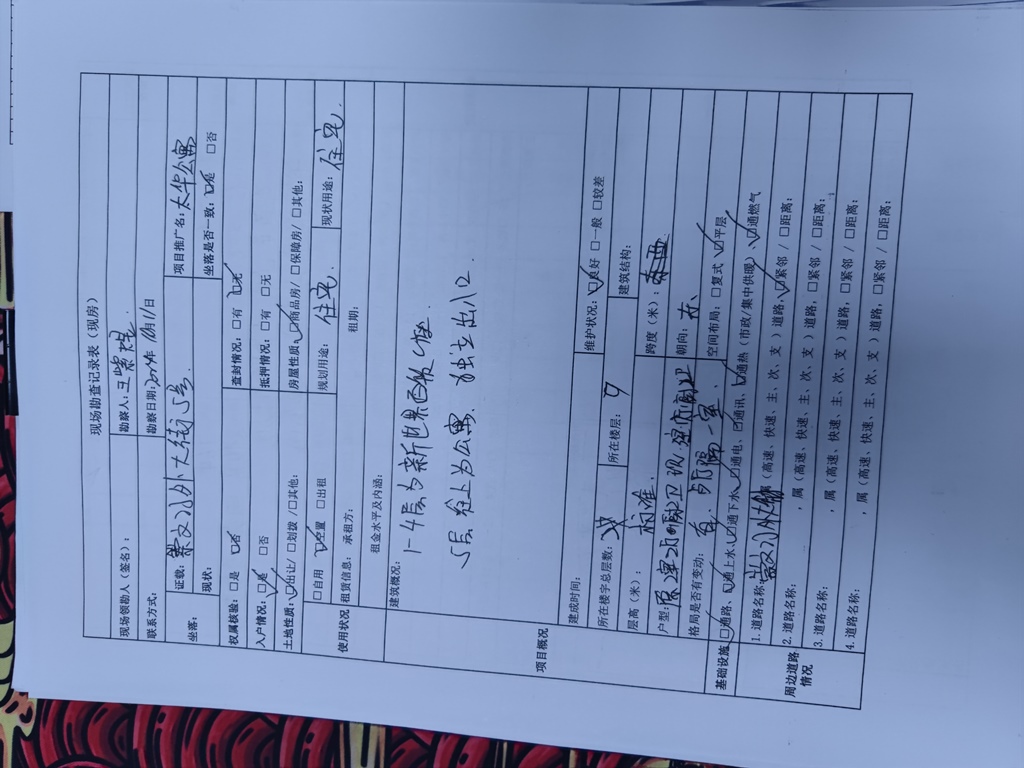 现场勘查记录表（现房）
现场领勘人（签名）： 勘察人：王
联系方式： 勘察日期： 年 月 日
坐落： 证载：崇文门外大街5号 项目推广名：太华公寓
现状： 坐落是否一致：☑是 □否
权属核验：□是 ☑否 查封情况：□有 ☑无
入户情况：☑是 □否 抵押情况：□有 □无
土地性质：☑出让/□划拨/□其他： 房屋性质：☑商品房/□保障房/□其他：
使用状况 □自用 ☑空置 □出租 规划用途：住宅. 现状用途：住宅.
租赁信息：承租方： 租期：
租金水平及内涵：
项目概况
建筑概况：
1-4层为新世界百货
5层往上为公寓. 独立出入口.
建成时间： 维护状况：☑良好 □一般 □较差
所在楼宇总层数： 所在楼层：9 建筑结构：
层高（米）：标准. 跨度（米）：
户型： 朝向：东
格局是否有变动：有. 空间布局：□复式 ☑平层
基础设施：☑通路、☑通上水、☑通下水、☑通电、☑通讯、☑通热（市政/集中供暖）、☑通燃气
周边道路情况
1.道路名称：崇文门外大街，属（高速、快速、主、次、支）道路，☑紧邻 / □距离：
2.道路名称： ，属（高速、快速、主、次、支）道路，□紧邻 / □距离：
3.道路名称： ，属（高速、快速、主、次、支）道路，□紧邻 / □距离：
4.道路名称： ，属（高速、快速、主、次、支）道路，□紧邻 / □距离：